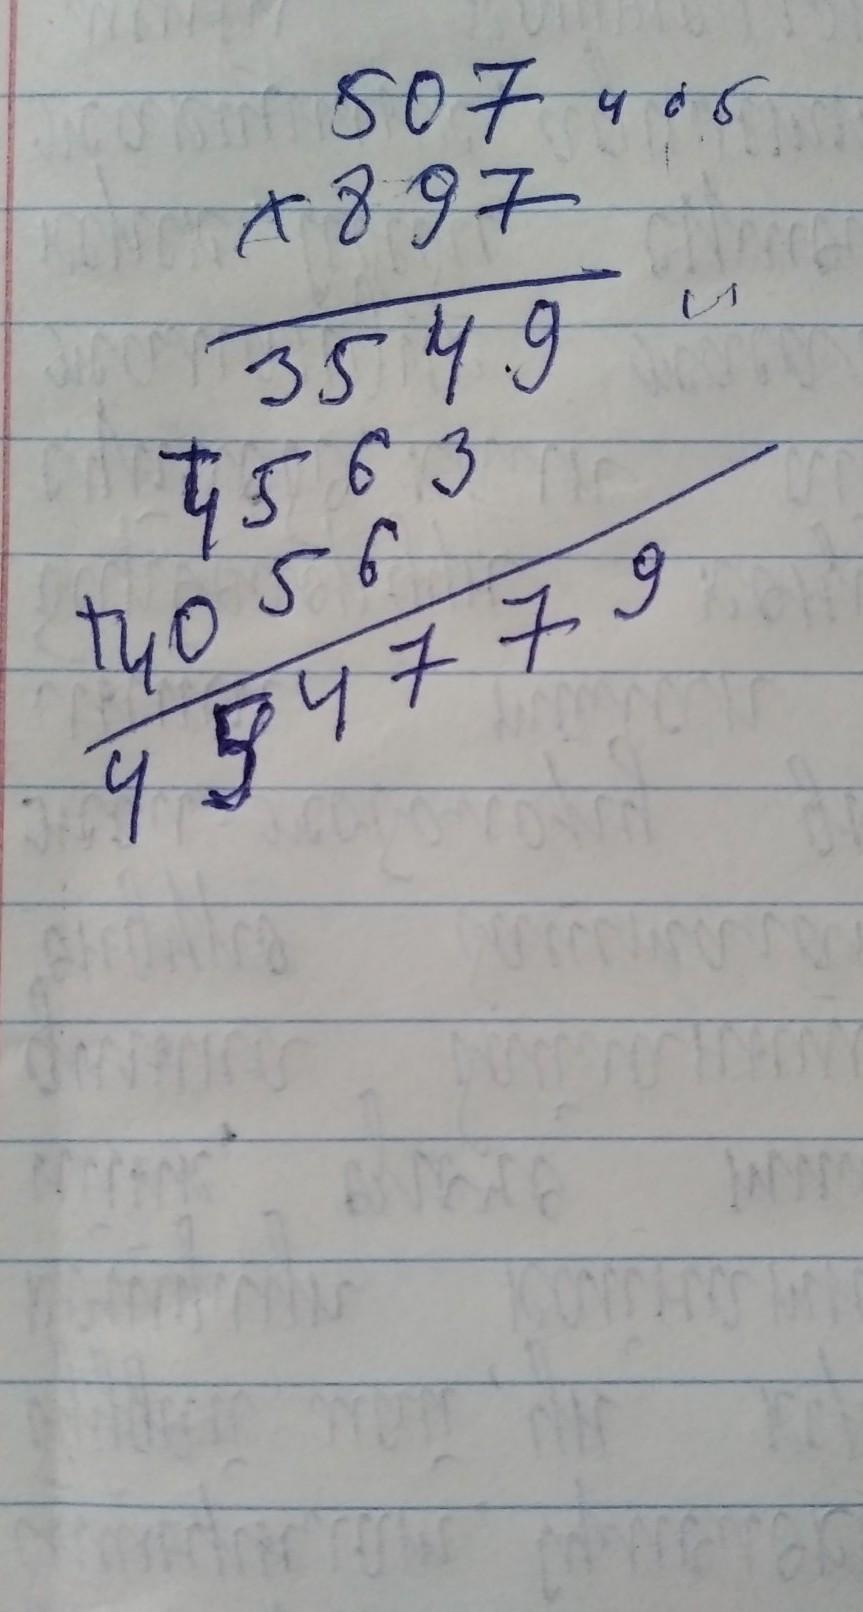 507 4 0 5
×897
3549
+4563
+4056
454779